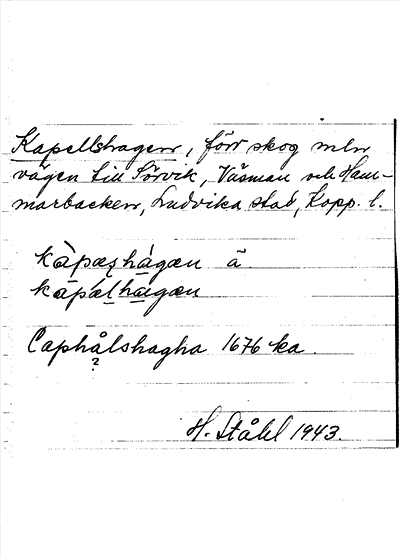 Kapellshagen, förr skog mln
vägen till Sörvik, Väsman och Ham-
marbacken, Ludvika stad, Kopp. l.
kàpæʂhágæn ä.
kàpǽḷhágæn
Caphålshagha 1676 ka.
?
H. Ståhl 1943.